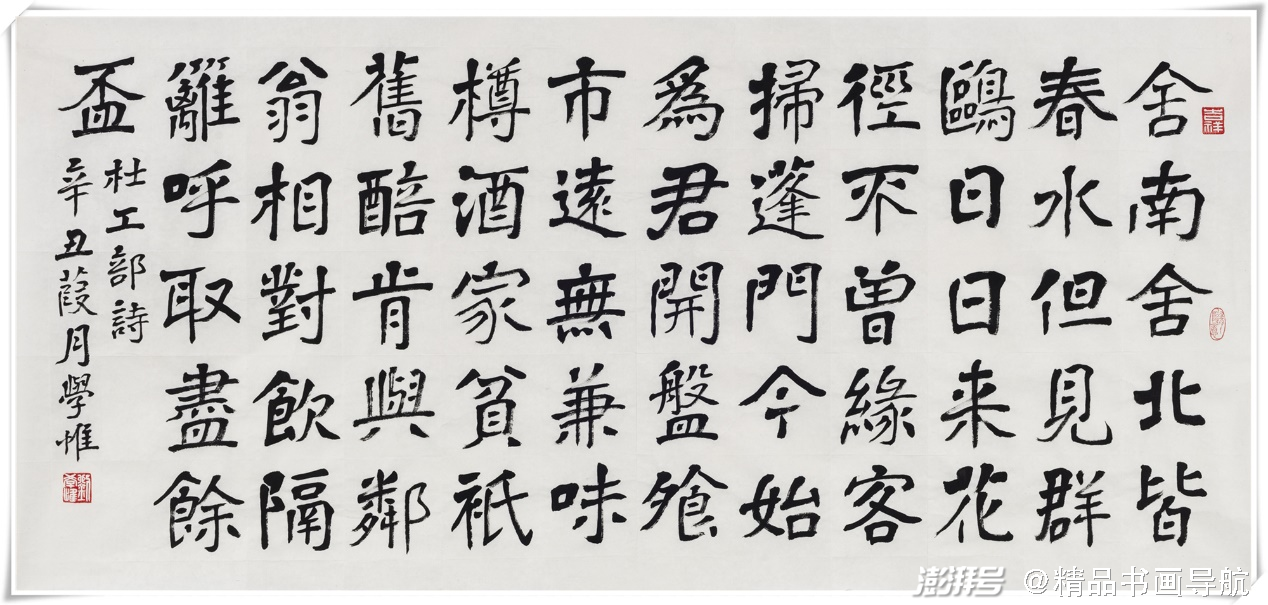 吉祥
舍南舍北皆
春水但見群
鷗日日来花
徑不曾緣客
掃蓬門今始
爲君開盤飱
市遠無兼味
樽酒家貧祇
舊醅肯與鄰
翁相對飲隔
籬呼取盡餘
盃
杜工部詩
辛丑葭月學惟
澎湃号 @精品书画导航